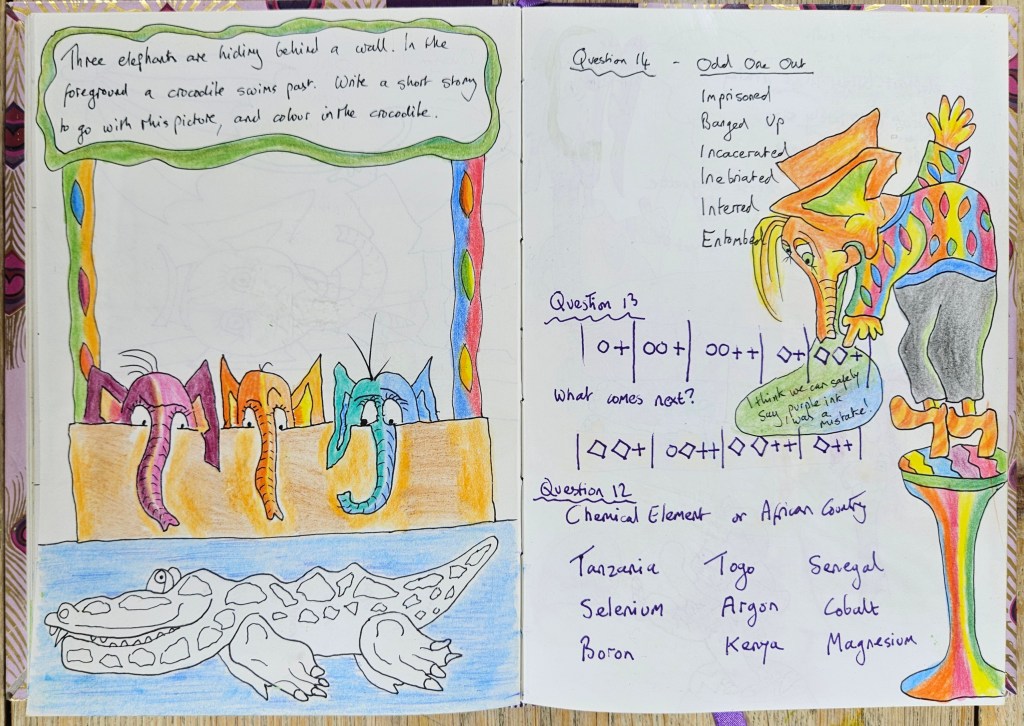 Three elephants are hiding behind a wall. In the
foreground a crocodile swims past. Write a short story
to go with this picture, and colour in the crocodile.
Question 14 - Odd One Out
Imprisoned
Banged Up
Incacerated
Inebriated
Interred
Entombed
Question 13
What comes next?
I think we can safely
say purple ink
was a
mistake!
Question 12
Chemical Element or African Country
Tanzania Togo Senegal
Selenium Argon Cobalt
Boron Kenya Magnesium